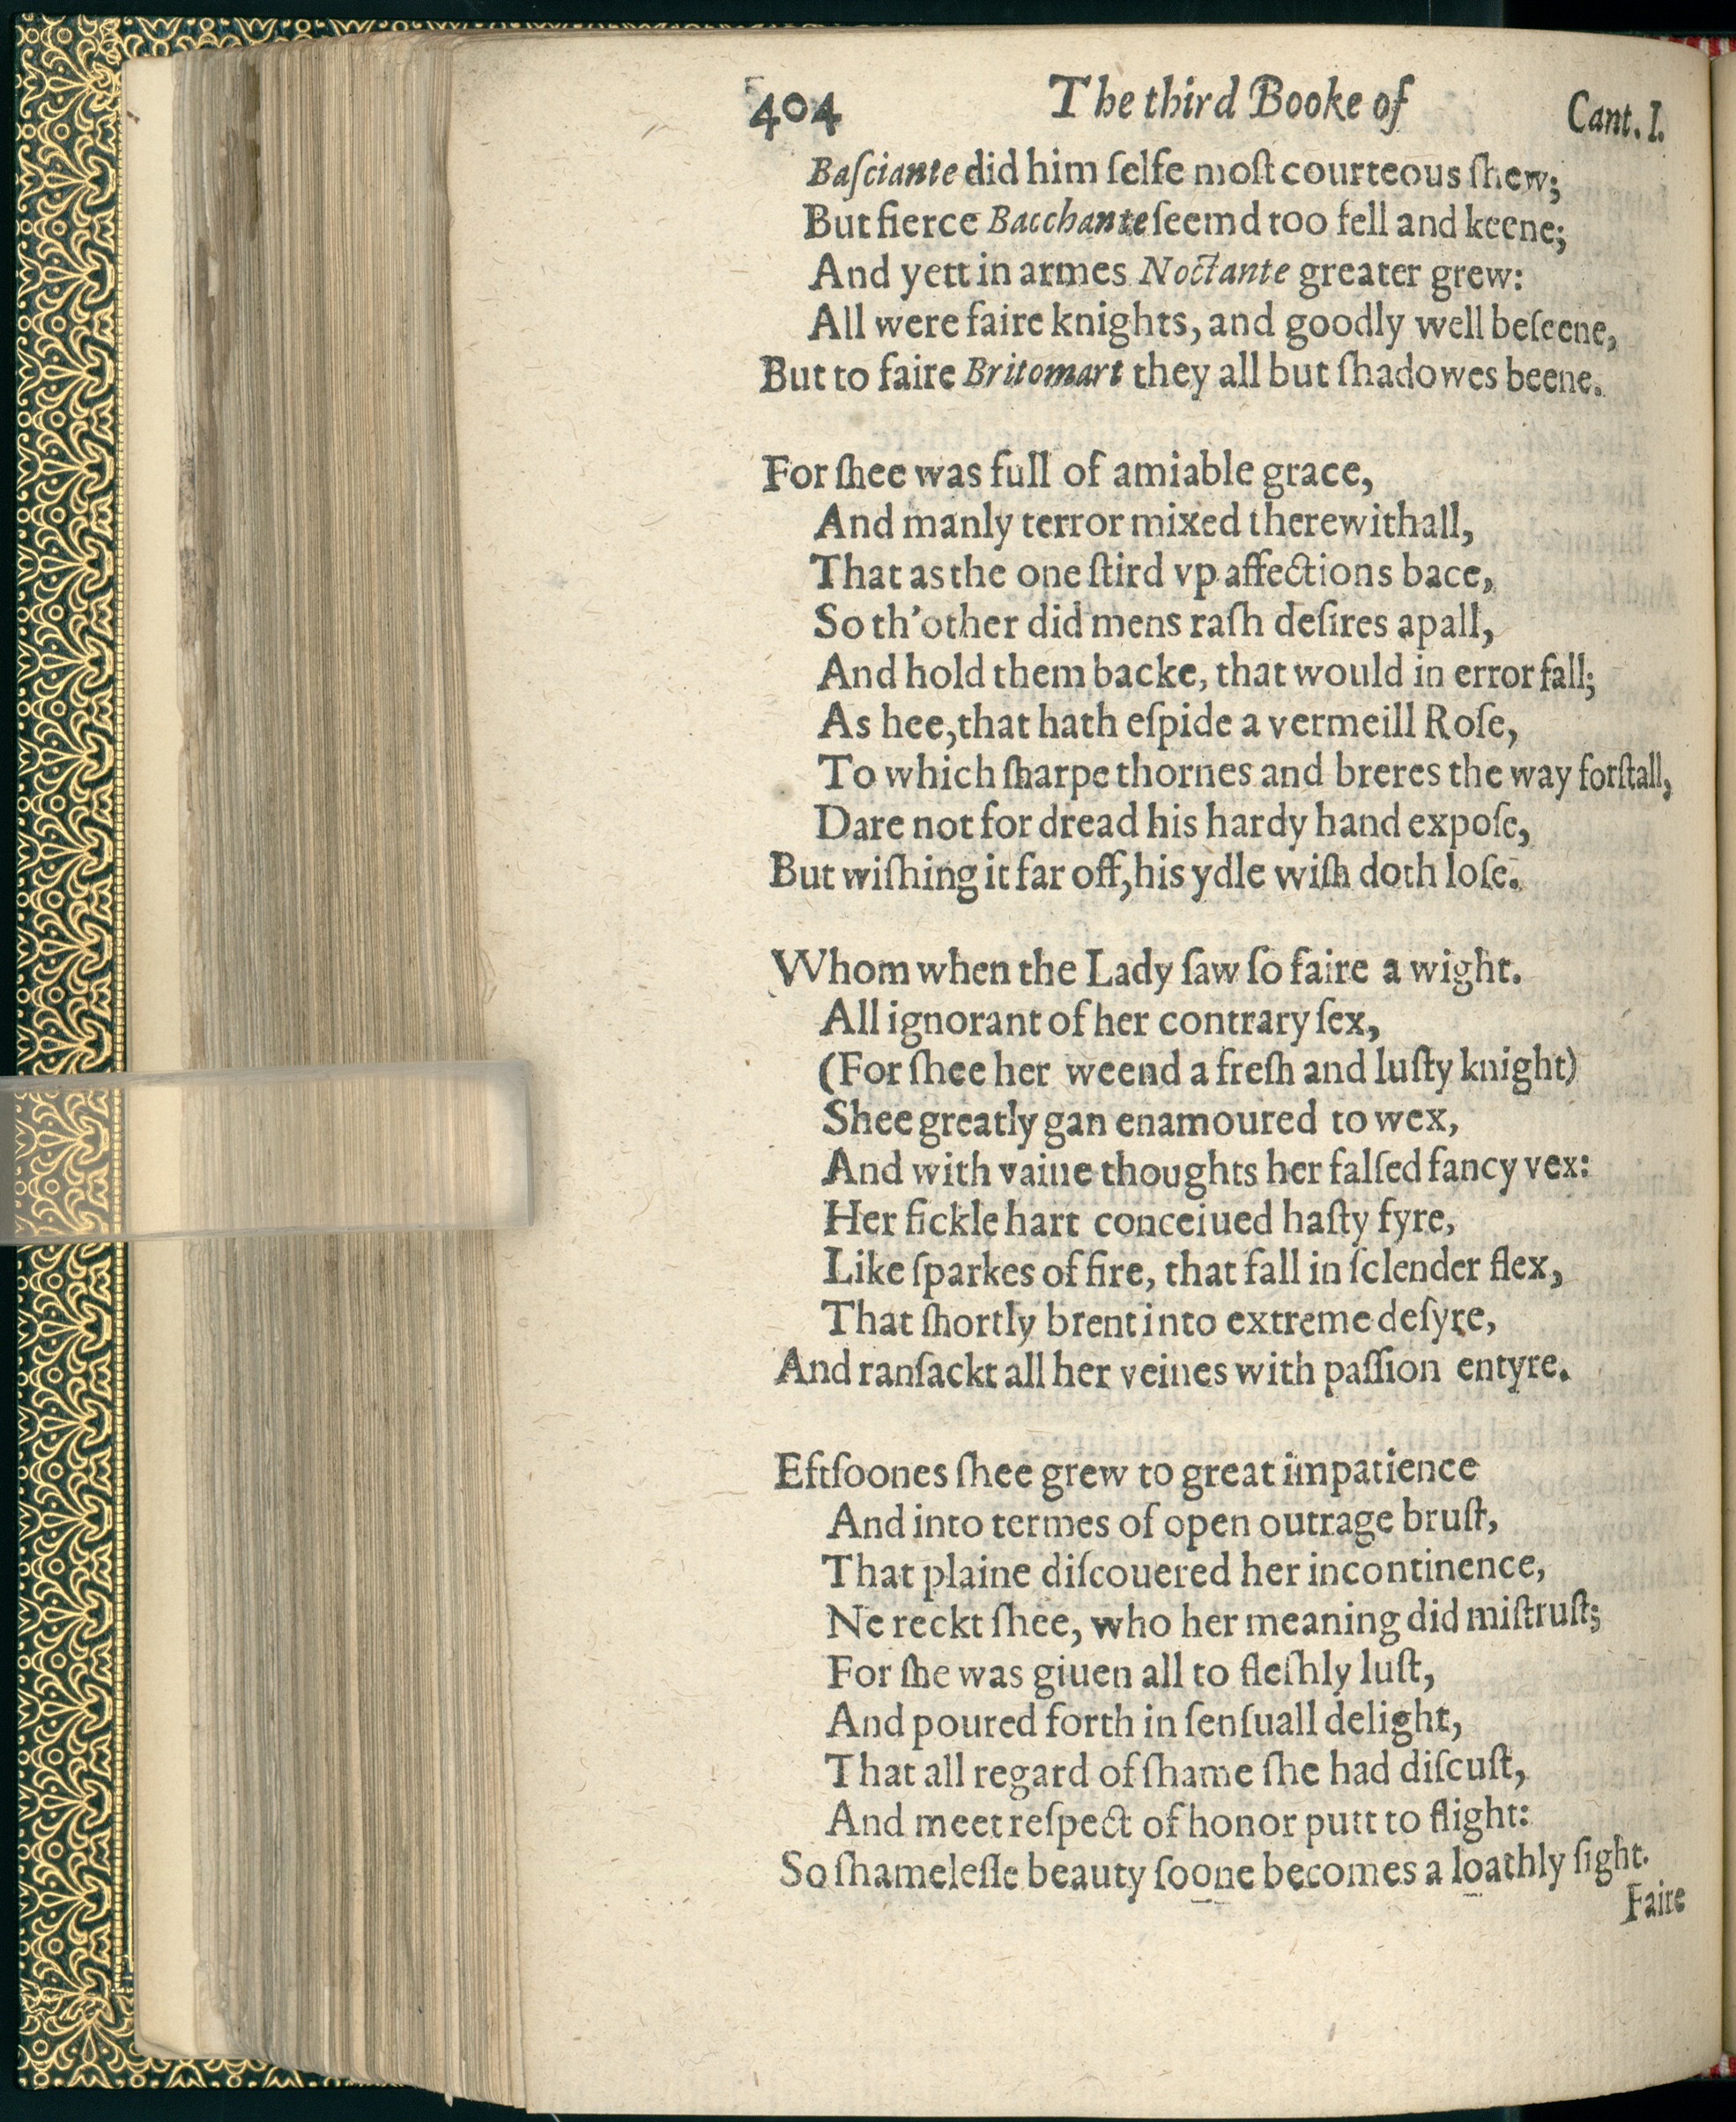 404 The third Booke of Cant. I.
Baſciante did him ſelfe moſt courteous ſhew;
But fierce Bacchante ſeemd too fell and keene;
And yett in armes Noctante greater grew:
All were faire knights, and goodly well beſeene,
But to faire Britomart they all but ſhadowes beene.
For ſhee was full of amiable grace,
And manly terror mixed therewithall,
That as the one ſtird vp affections bace,
So th'other did mens raſh deſires apall,
And hold them backe, that would in error fall;
As hee, that hath eſpide a vermeill Roſe,
To which ſharpe thornes and breres the way forſtall,
Dare not for dread his hardy hand expoſe,
But wiſhing it far off, his ydle wiſh doth loſe.
Whom when the Lady ſaw ſo faire a wight.
All ignorant of her contrary ſex,
(For ſhee her weend a freſh and luſty knight)
Shee greatly gan enamoured to wex,
And with vaine thoughts her falſed fancy vex:
Her fickle hart conceiued haſty fyre,
Like ſparkes of fire, that fall in ſclender flex,
That ſhortly brent into extreme deſyre,
And ranſackt all her veines with paſſion entyre.
Eftſoones ſhee grew to great impatience
And into termes of open outrage bruſt,
That plaine diſcouered her incontinence,
Ne reckt ſhee, who her meaning did miſtruſt;
For ſhe was giuen all to fleſhly luſt,
And poured forth in ſenſuall delight,
That all regard of ſhame ſhe had diſcuſt,
And meet reſpect of honor putt to flight:
So ſhameleſſe beauty ſoone becomes a loathly ſight.
Faire